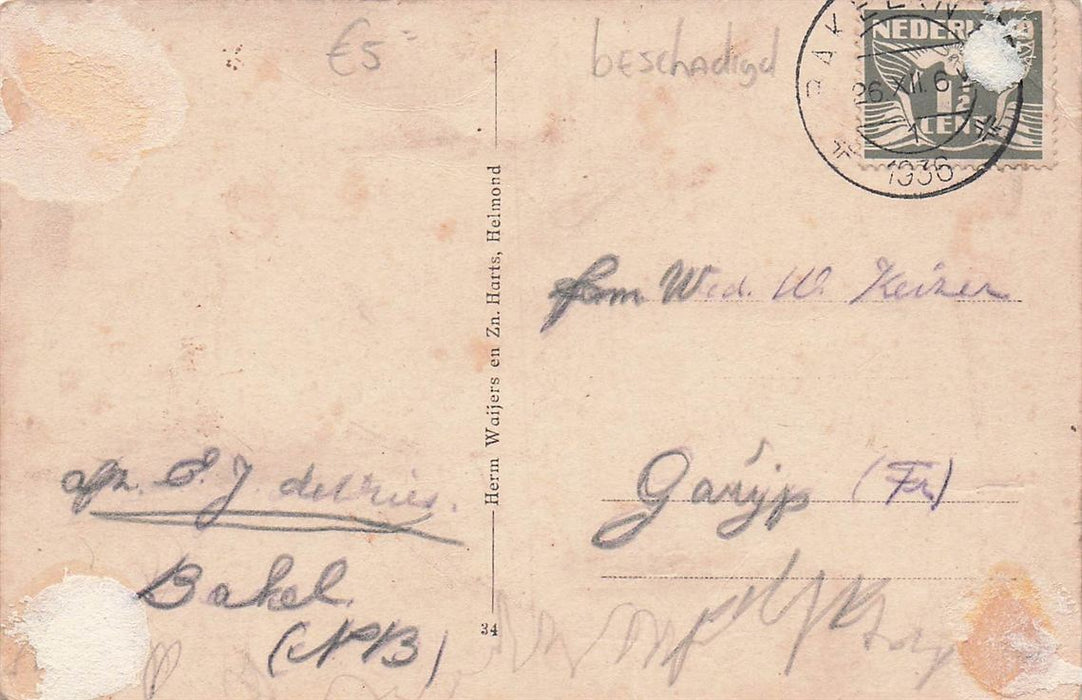 €5=
beschadigd
NEDERLAND
1½
CENT
BAKEL
26 XII. 6
1936
Herm Waijers en Zn. Harts, Helmond
34
Wed. W. Keizer
Garÿp (Fr)
afz. S. J. deVries.
Bakel
(NB)